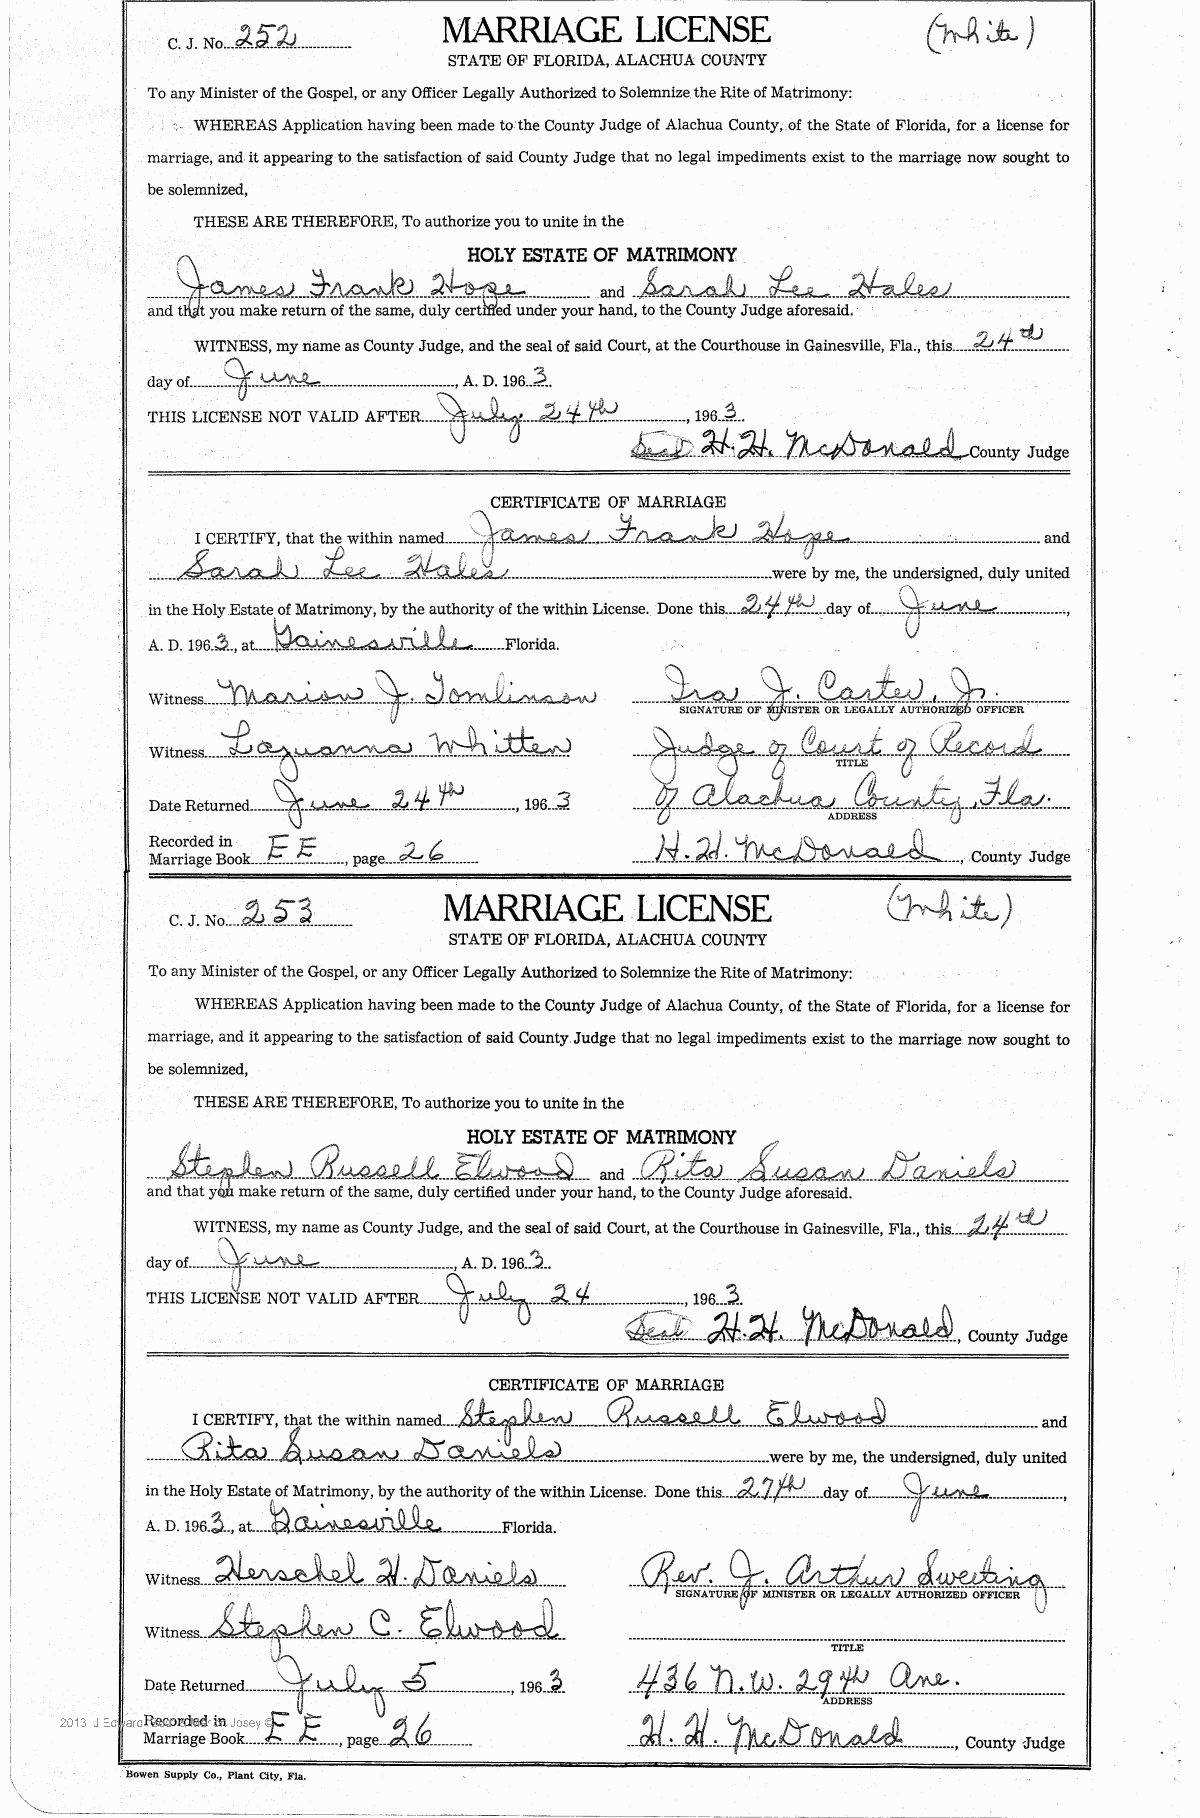 C. J. No. 252 MARRIAGE LICENSE (White)
STATE OF FLORIDA, ALACHUA COUNTY
To any Minister of the Gospel, or any Officer Legally Authorized to Solemnize the Rite of Matrimony:
WHEREAS Application having been made to the County Judge of Alachua County, of the State of Florida, for a license for
marriage, and it appearing to the satisfaction of said County Judge that no legal impediments exist to the marriage now sought to
be solemnized,
THESE ARE THEREFORE, To authorize you to unite in the
HOLY ESTATE OF MATRIMONY
James Frank Hope and Sarah Lee Hales
and that you make return of the same, duly certified under your hand, to the County Judge aforesaid.
WITNESS, my name as County Judge, and the seal of said Court, at the Courthouse in Gainesville, Fla., this 24th
day of June, A. D. 1963.
THIS LICENSE NOT VALID AFTER July 24th, 1963.
Seal H. H. McDonald County Judge
CERTIFICATE OF MARRIAGE
I CERTIFY, that the within named James Frank Hope and
Sarah Lee Hales were by me, the undersigned, duly united
in the Holy Estate of Matrimony, by the authority of the within License. Done this 24th day of June,
A. D. 1963, at Gainesville Florida.
Witness Marion J. Tomlinson Ira J. Carter, Jr.
SIGNATURE OF MINISTER OR LEGALLY AUTHORIZED OFFICER
Witness Lazuanna Whitten Judge of Court of Record
TITLE
Date Returned June 24th, 1963 of Alachua County, Fla.
ADDRESS
Recorded in
Marriage Book EE, page 26 H. H. McDonald, County Judge
C. J. No. 253 MARRIAGE LICENSE (White)
STATE OF FLORIDA, ALACHUA COUNTY
To any Minister of the Gospel, or any Officer Legally Authorized to Solemnize the Rite of Matrimony:
WHEREAS Application having been made to the County Judge of Alachua County, of the State of Florida, for a license for
marriage, and it appearing to the satisfaction of said County Judge that no legal impediments exist to the marriage now sought to
be solemnized,
THESE ARE THEREFORE, To authorize you to unite in the
HOLY ESTATE OF MATRIMONY
Stephen Russell Elwood and Rita Susan Daniels
and that you make return of the same, duly certified under your hand, to the County Judge aforesaid.
WITNESS, my name as County Judge, and the seal of said Court, at the Courthouse in Gainesville, Fla., this 24th
day of June, A. D. 1963.
THIS LICENSE NOT VALID AFTER July 24, 1963.
Seal H. H. McDonald, County Judge
CERTIFICATE OF MARRIAGE
I CERTIFY, that the within named Stephen Russell Elwood and
Rita Susan Daniels were by me, the undersigned, duly united
in the Holy Estate of Matrimony, by the authority of the within License. Done this 27th day of June,
A. D. 1963, at Gainesville Florida.
Witness Herschel H. Daniels Rev. J. Arthur Sweeting
SIGNATURE OF MINISTER OR LEGALLY AUTHORIZED OFFICER
Witness Stephen C. Elwood
TITLE
Date Returned July 5, 1963 436 N.W. 29th Ave.
ADDRESS
2013 J Edward Josey ©
Recorded in
Marriage Book EE, page 26 H. H. McDonald, County Judge
Bowen Supply Co., Plant City, Fla.